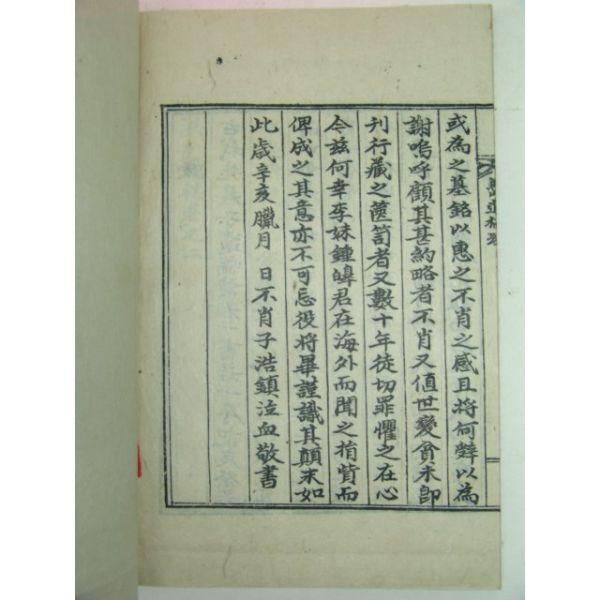 或為之墓銘以惠之不肖之感且將何辭以為
謝嗚呼顧其甚約略者不肖又值世變貧未卽
刊行藏之篋笥者又數十年徒切罪懼之在心
今玆何幸李妹鍾皥君在海外而聞之捐貲而
俾成之其意亦不可忘役將畢謹識其顛末如
此歲辛亥臘月 日不肖子浩鎮泣血敬書